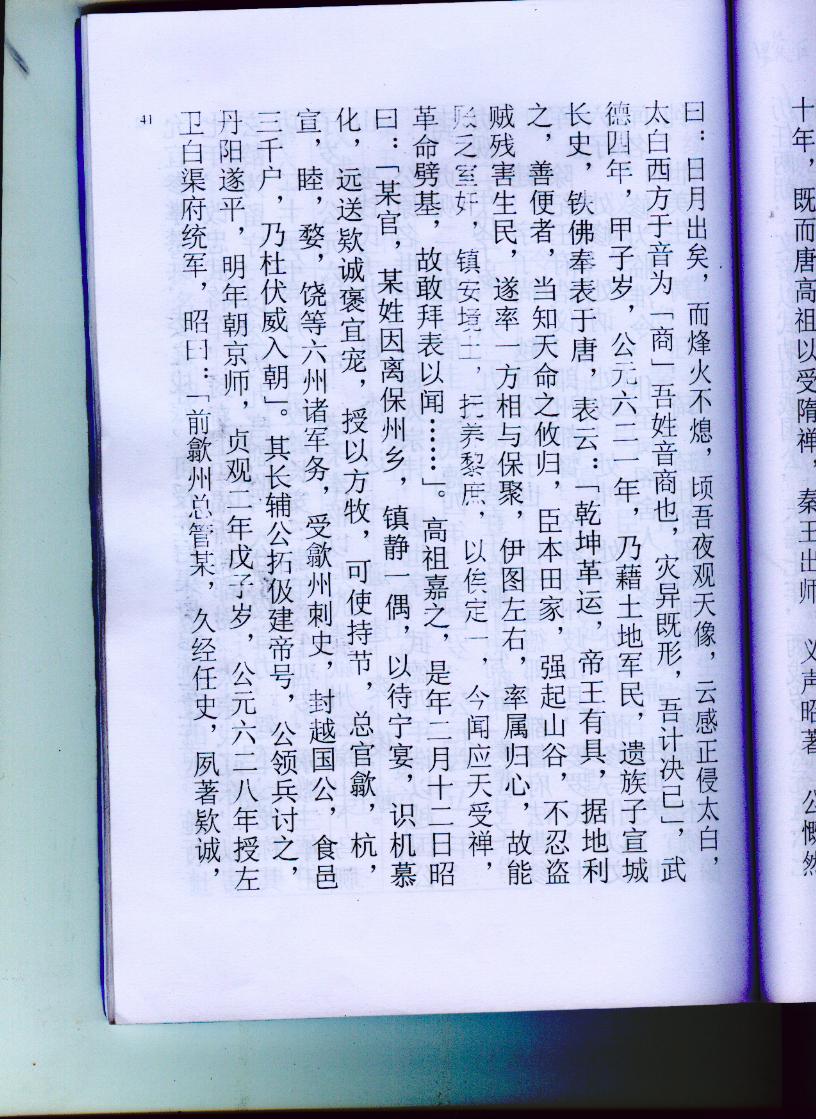 十年，既而唐高祖以受隋禅，秦王出师，义声昭著，公慨然
曰：日月出矣，而烽火不熄，顷吾夜观天像，云感正侵太白，
太白西方于音为「商」吾姓音商也，灾异既形，吾计决已」，武
德四年，甲子岁，公元六二一年，乃藉土地军民，遗族子宣城
长史，铁佛奉表于唐，表云：「乾坤革运，帝王有具，据地利
之，善便者，当知天命之攸归，臣本田家，强起山谷，不忍盗
贼残害生民，遂率一方相与保聚，伊图左右，率属归心，故能
乏室奸，镇安境土，抚养黎庶，以俟定一，今闻应天受禅，
革命劈基，故敢拜表以闻……」。高祖嘉之，是年二月十二日昭
曰：「某官，某姓因离保州乡，镇静一偶，以待宁宴，识机慕
化，远送欵诚褒宜宠，授以方牧，可使持节，总官歙，杭，
宣，睦，婺，饶等六州诸军务，受歙州刺史，封越国公，食邑
三千户，乃杜伏威入朝」。其长辅公拓伋建帝号，公领兵讨之，
丹阳遂平，明年朝京师，贞观一年戊子岁，公元六二八年授左
卫白渠府统军，昭曰：「前歙州总管某，久经任史，夙著欵诚，
41